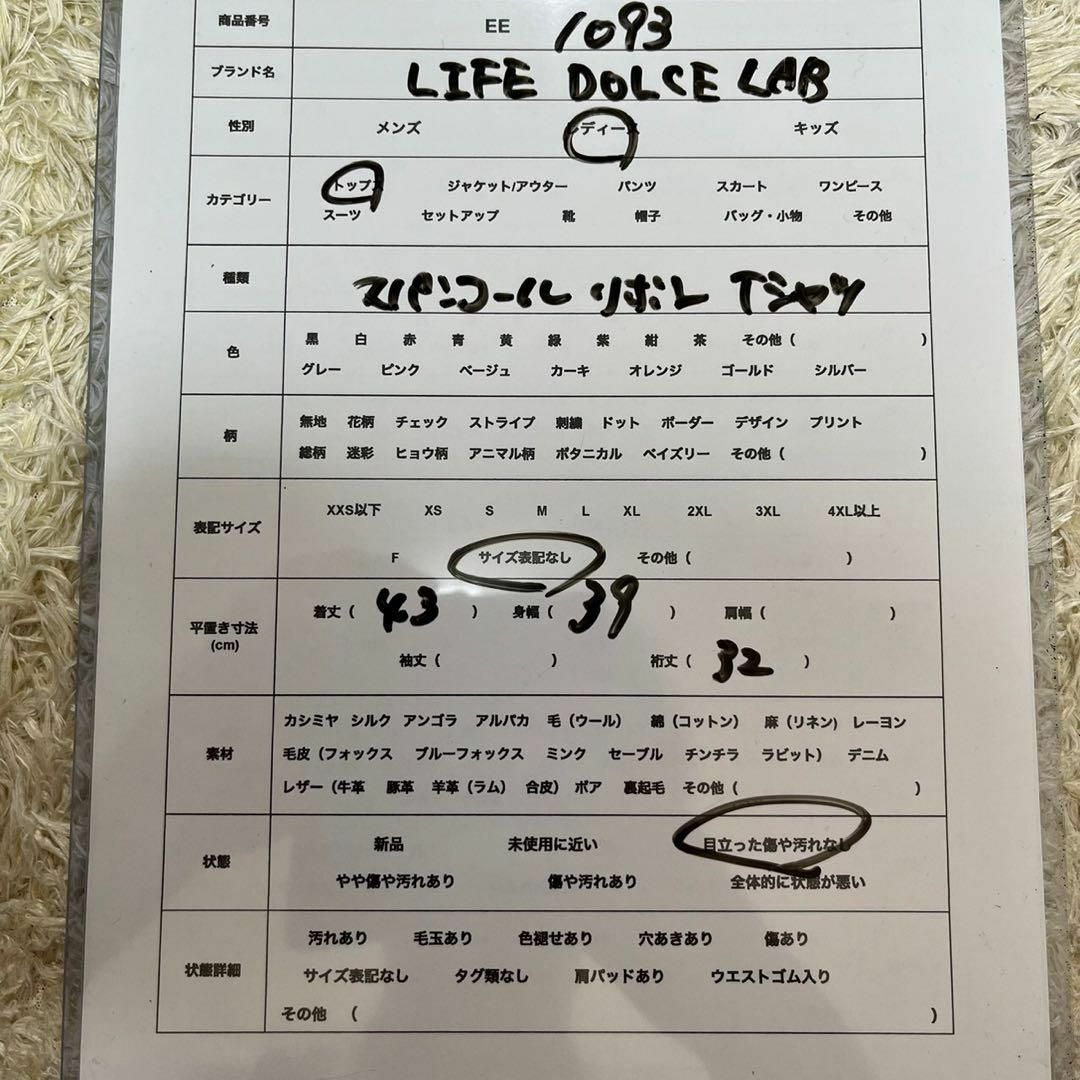 商品番号 EE 1093
ブランド名 LIFE DOLCE LAB
性別 メンズ レディース キッズ
カテゴリー トップス ジャケット/アウター パンツ スカート ワンピース
スーツ セットアップ 靴 帽子 バッグ・小物 その他
種類 スパンコール リボン Tシャツ
色 黒 白 赤 青 黄 緑 紫 紺 茶 その他 ( )
グレー ピンク ベージュ カーキ オレンジ ゴールド シルバー
柄 無地 花柄 チェック ストライプ 刺繍 ドット ボーダー デザイン プリント
総柄 迷彩 ヒョウ柄 アニマル柄 ボタニカル ペイズリー その他 ( )
表記サイズ XXS以下 XS S M L XL 2XL 3XL 4XL以上
F サイズ表記なし その他 ( )
平置き寸法 (cm) 着丈 ( 43 ) 身幅 ( 39 ) 肩幅 ( )
袖丈 ( ) 裄丈 ( 32 )
素材 カシミヤ シルク アンゴラ アルパカ 毛 (ウール) 綿 (コットン) 麻 (リネン) レーヨン
毛皮 (フォックス ブルーフォックス ミンク セーブル チンチラ ラビット) デニム
レザー (牛革 豚革 羊革 (ラム) 合皮) ボア 裏起毛 その他 ( )
状態 新品 未使用に近い 目立った傷や汚れなし
やや傷や汚れあり 傷や汚れあり 全体的に状態が悪い
状態詳細 汚れあり 毛玉あり 色褪せあり 穴あきあり 傷あり
サイズ表記なし タグ類なし 肩パッドあり ウエストゴム入り
その他 ( )